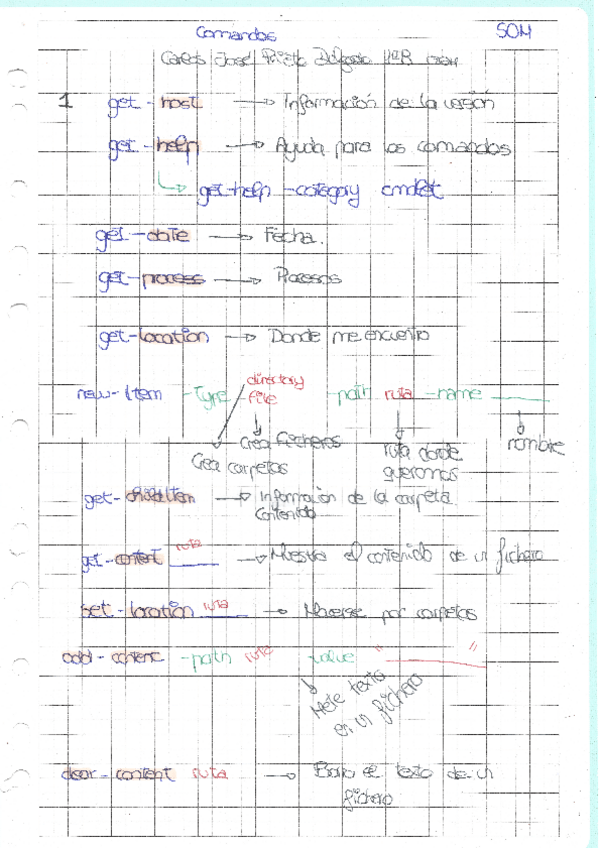 Comandos SOM
Carlos José Prieto Delgado 1ºB SOM
1 get-host → Información de la versión
get-help → Ayuda para los comandos
get-help -category cmdlet
get-date → Fecha.
get-process → Procesos
get-location → Donde me encuentro
directory
new-Item -Type / file path ruta -name ____
Crea ficheros
Crea carpetas
ruta donde
queramos
nombre
get-childItem → Información de la carpeta
Contenido
get-content ruta → Muestra el contenido de un fichero
set-location ruta → Moverse por carpetas
add-content -path ruta value "____"
Mete texto
en un fichero
clear-content ruta → Borra el texto de un
fichero